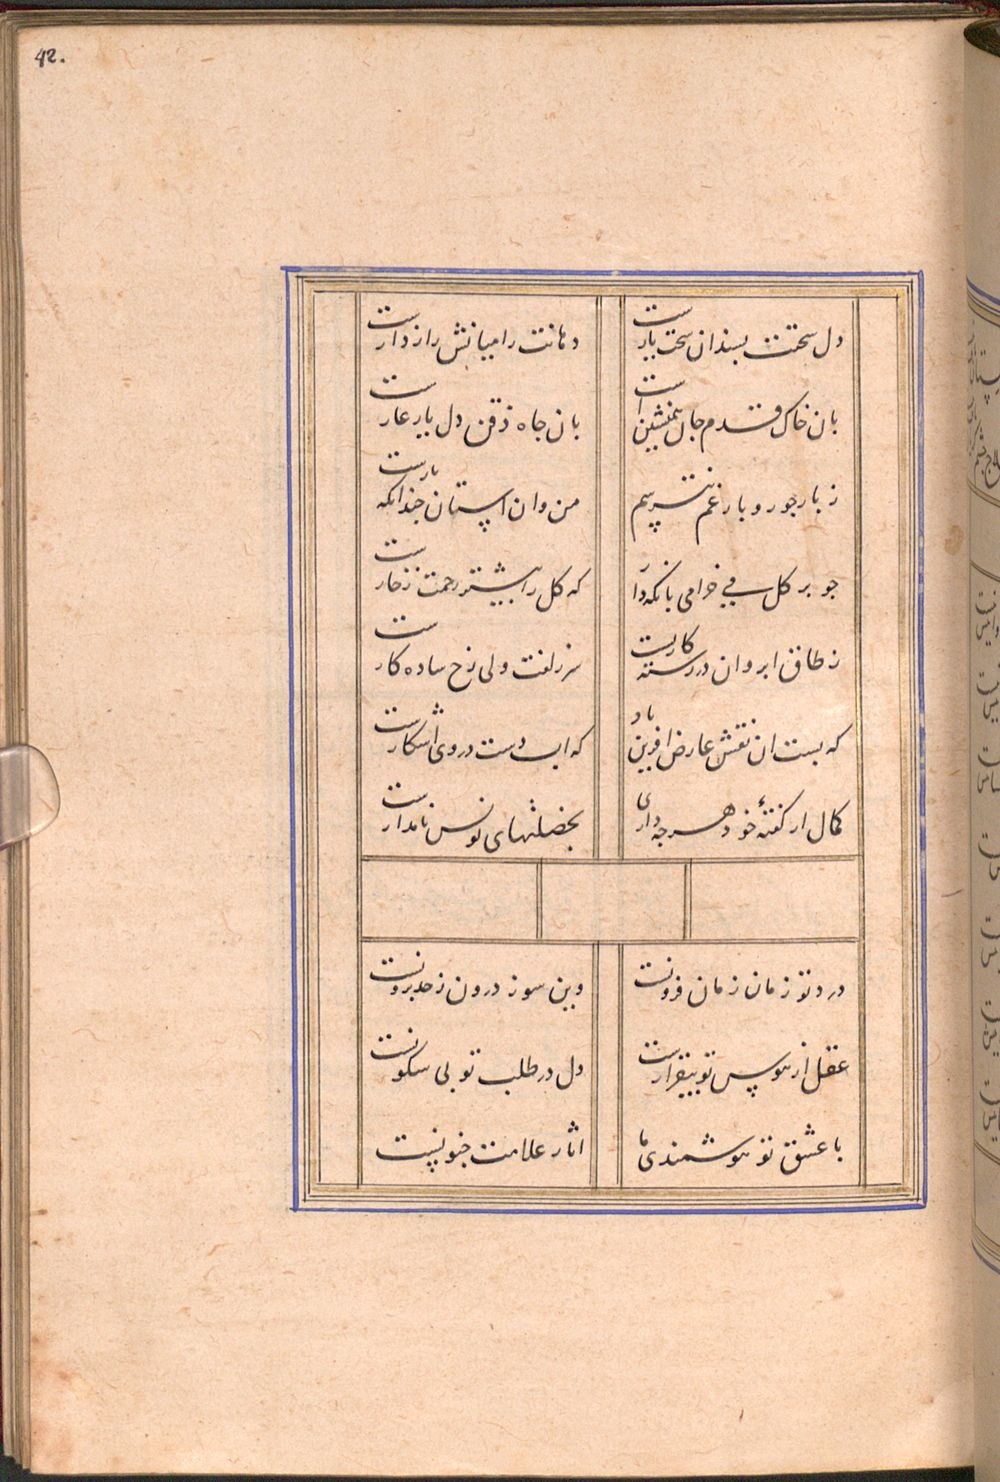 42.
دل سختت بسندان سخت یارست
دهانت را میانش رازدارست
بان خاک قدم جان همنشین است
بان چاه ذقن دل یار غارست
ز بار جور و بار غم نترسیم
من وان استان چندانکه بارست
چو بر کل می خرامی پا نکه دار
که کل را بیشتر زحمت ز خارست
ز طاق ابروان در دسته کاریست
سر زلفت ولی زخ ساده کارست
که بست ان نقش عارض افرین باد
که اب دست در وی اشکارست
کمال از کفتهٔ خود هرچه داری
بخصلتهای تونس نامدارست
درد تو زمان زمان فزونست
وین سوز درون ز حد برونست
عقل از هوس تو بیقرارست
دل در طلب تو بی سکونست
با عشق تو هوشمندی ما
اثار علامت جنونست